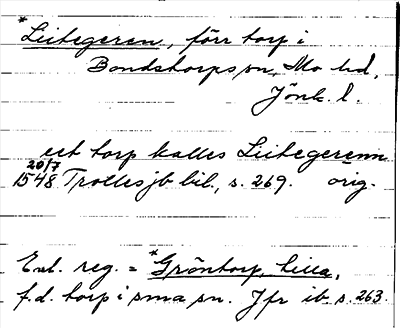 *Liitegeren, förr torp i
Bondstorps sn, Mo hd,
Jönk. l.
ett torp kalles Liitegerenn
20/7
1548 Trolles jb bil., s. 269. orig.
Enl. reg. = *Gröntorp, Lilla,
f.d. torp i sma sn. Jfr ib. s. 263.